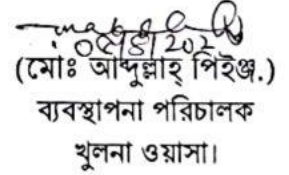 (মোঃ আব্দুল্লাহ্ পিইঞ্জ.)
ব্যবস্থাপনা পরিচালক
খুলনা ওয়াসা।